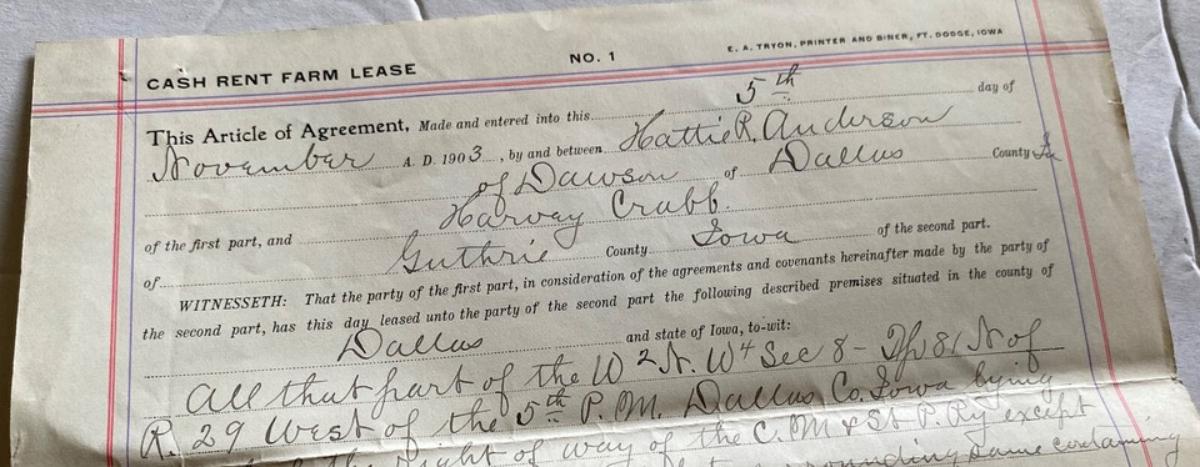 CASH RENT FARM LEASE NO. 1 E. A. TRYON, PRINTER AND BINER, FT. DODGE, IOWA
This Article of Agreement, Made and entered into this 5th day of
November A. D. 1903, by and between Hattie R. Anderson
of Dawson of Dallas County Ia
of the first part, and Harvey Crabb.
of Guthrie County Iowa of the second part.
WITNESSETH: That the party of the first part, in consideration of the agreements and covenants hereinafter made by the party of
the second part, has this day leased unto the party of the second part the following described premises situated in the county of
Dallas and state of Iowa, to-wit:
All that part of the W 2 N. W 4 Sec 8 - Tp 81 N of
R. 29 West of the 5th P. M. Dallas Co. Iowa lying
right of way of the C. M & St P. Ry except
same containing